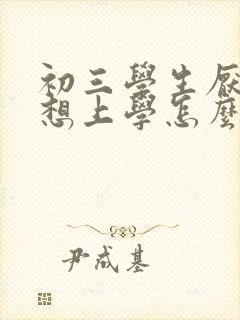 初三學生厭
想上學怎麼
尹成基